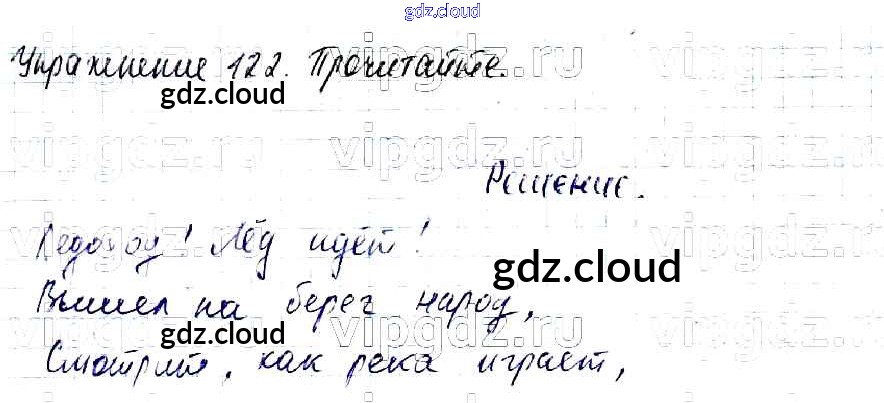 gdz.cloud
Упражнение 122. Прочитайте.
gdz.cloud
vipgdz.ru vipgdz.ru vipgdz.ru
Решение.
Ледоход! Лёд идёт!
gdz.cloud
Вышел на берег народ,
gdz.cloud
Смотрит, как река играет,